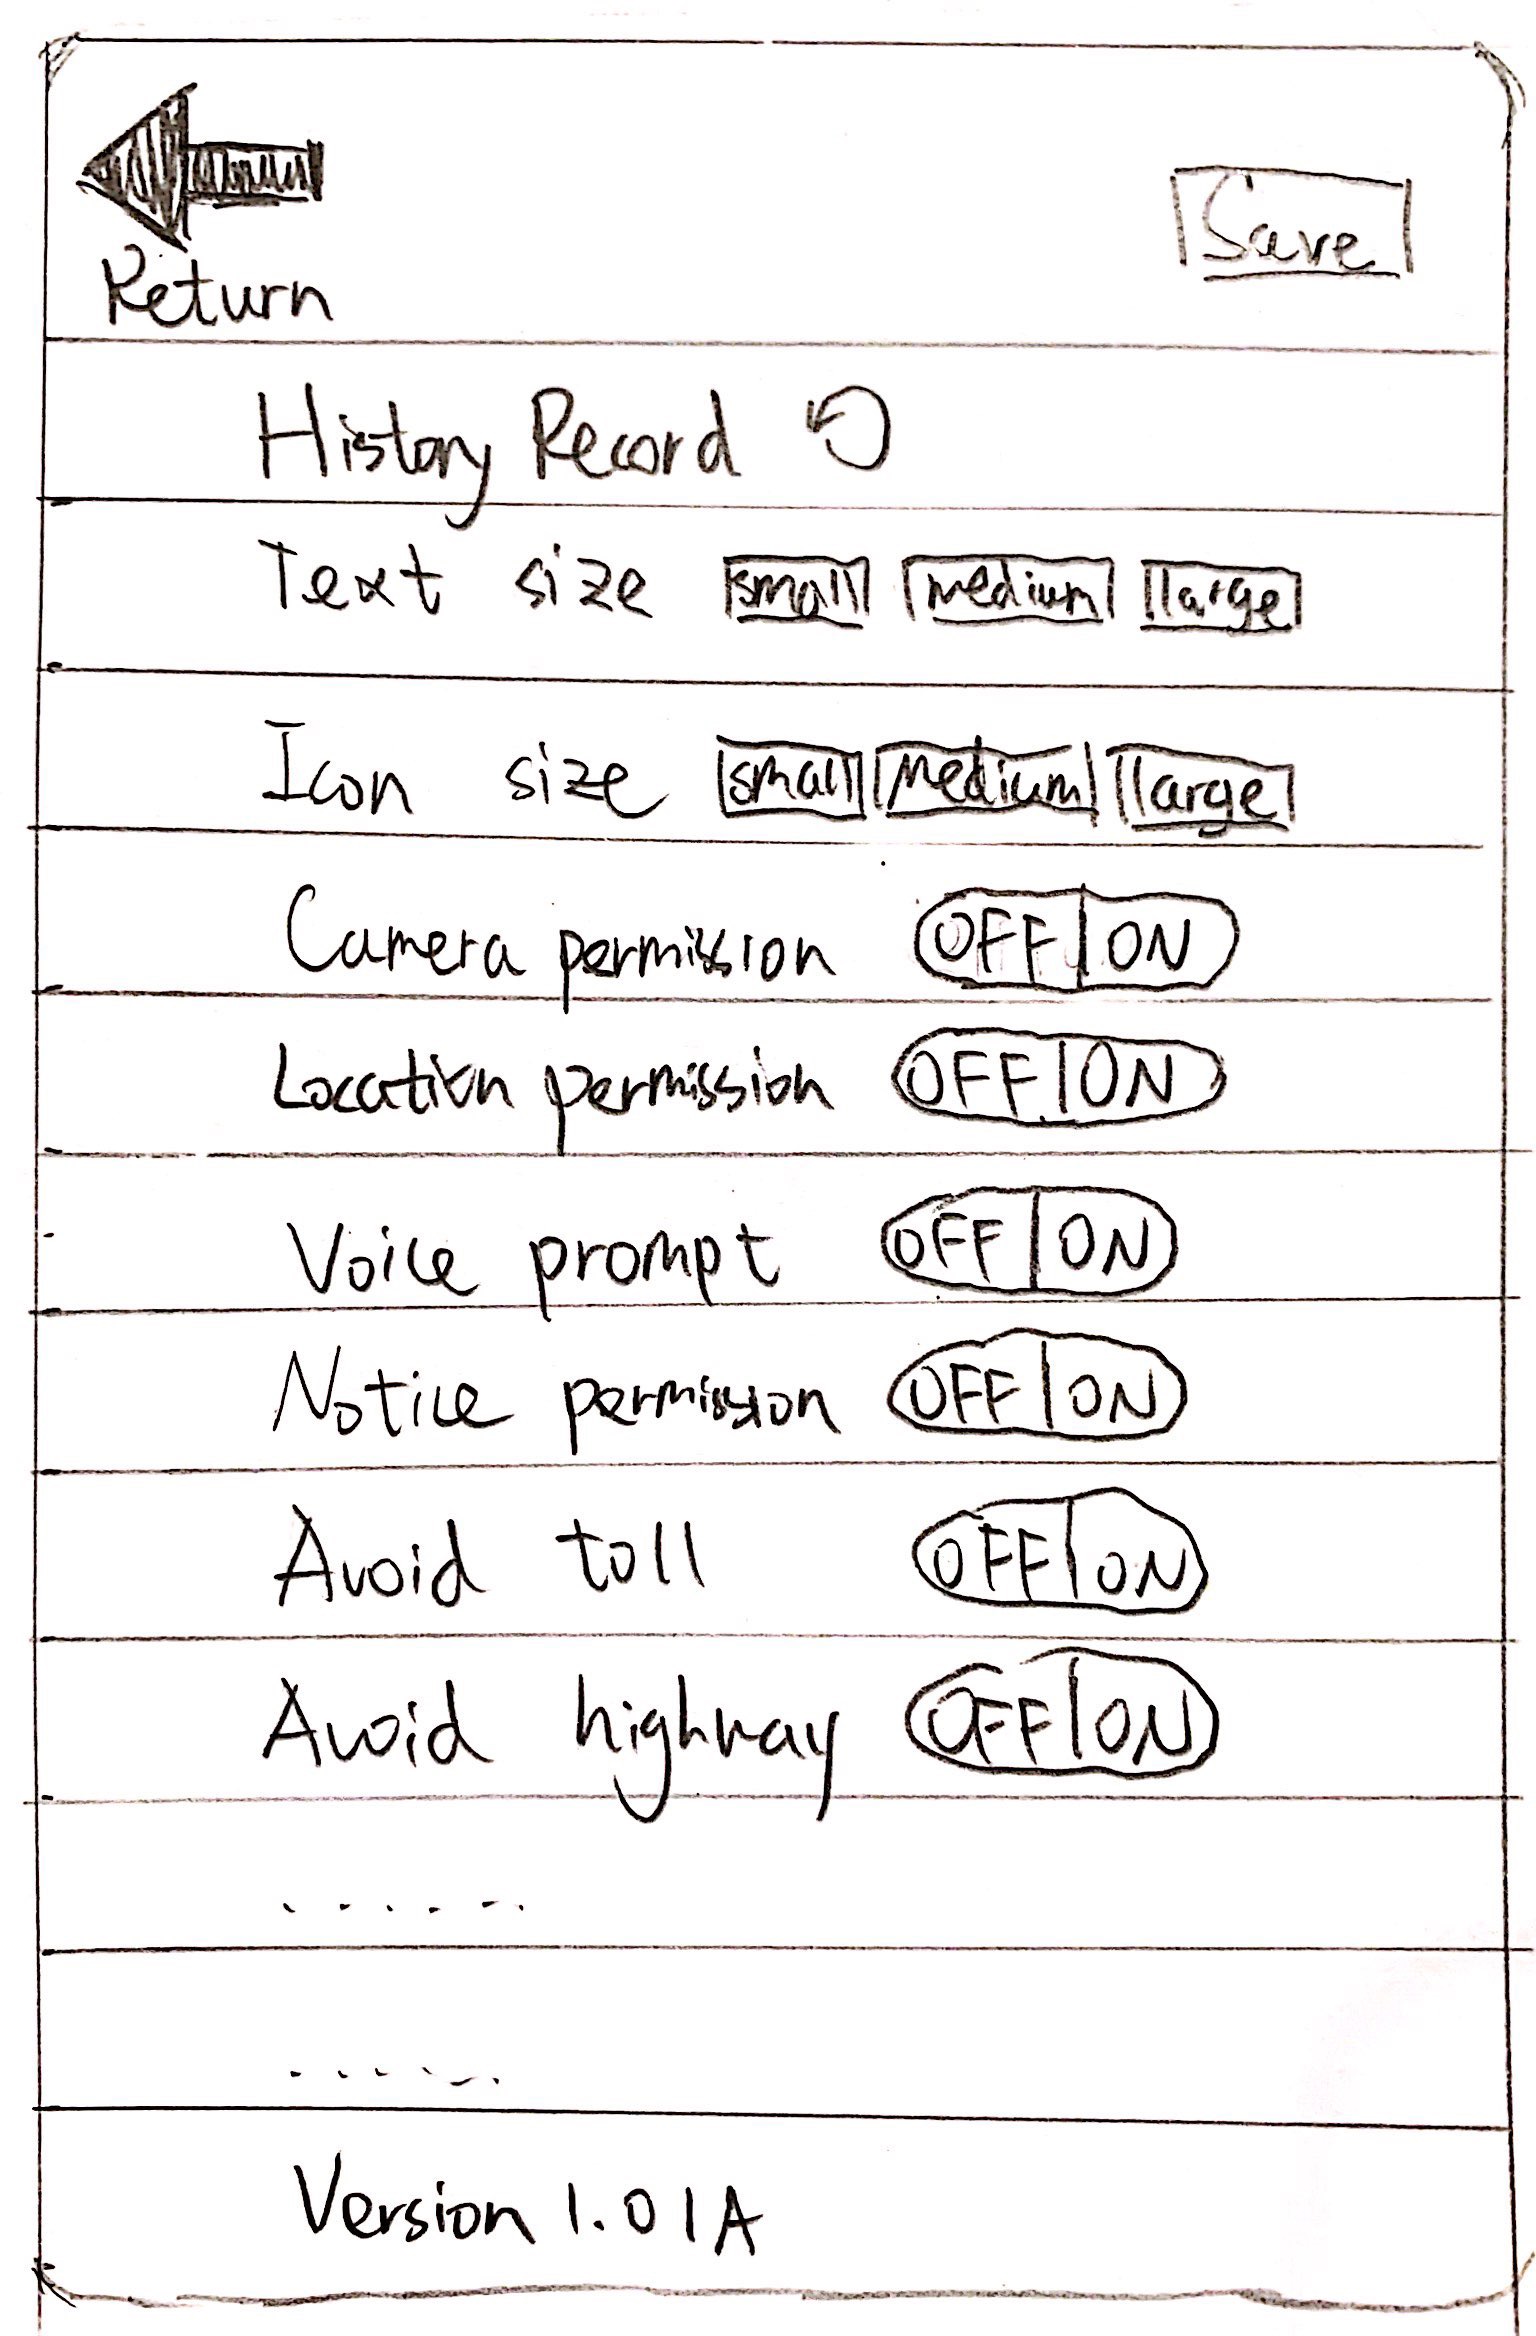 Return
Save
History Record
Text size small medium large
Icon size small medium large
Camera permission OFF ON
Location permission OFF ON
Voice prompt OFF ON
Notice permission OFF ON
Avoid toll OFF ON
Avoid highway OFF ON
......
......
Version 1.01A